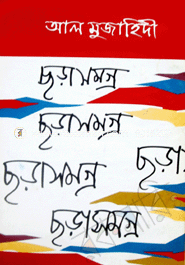 আল মুজাহিদী
ছড়াসমগ্র
ছড়াসমগ্র
ছড়াস
ছড়াসমগ্র
ছড়াসমগ্র